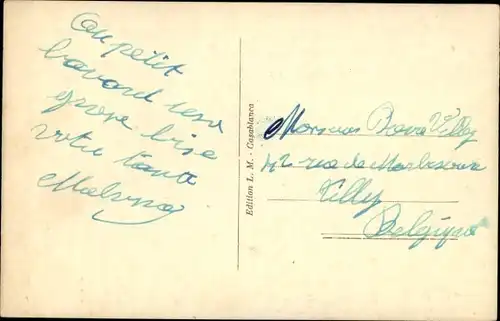 Au petit
bavard une
grosse bise
votre tante
Malvina
Edition L. M. - Casablanca
Monsieur Tilly
42 rue de
Tilly
Belgique